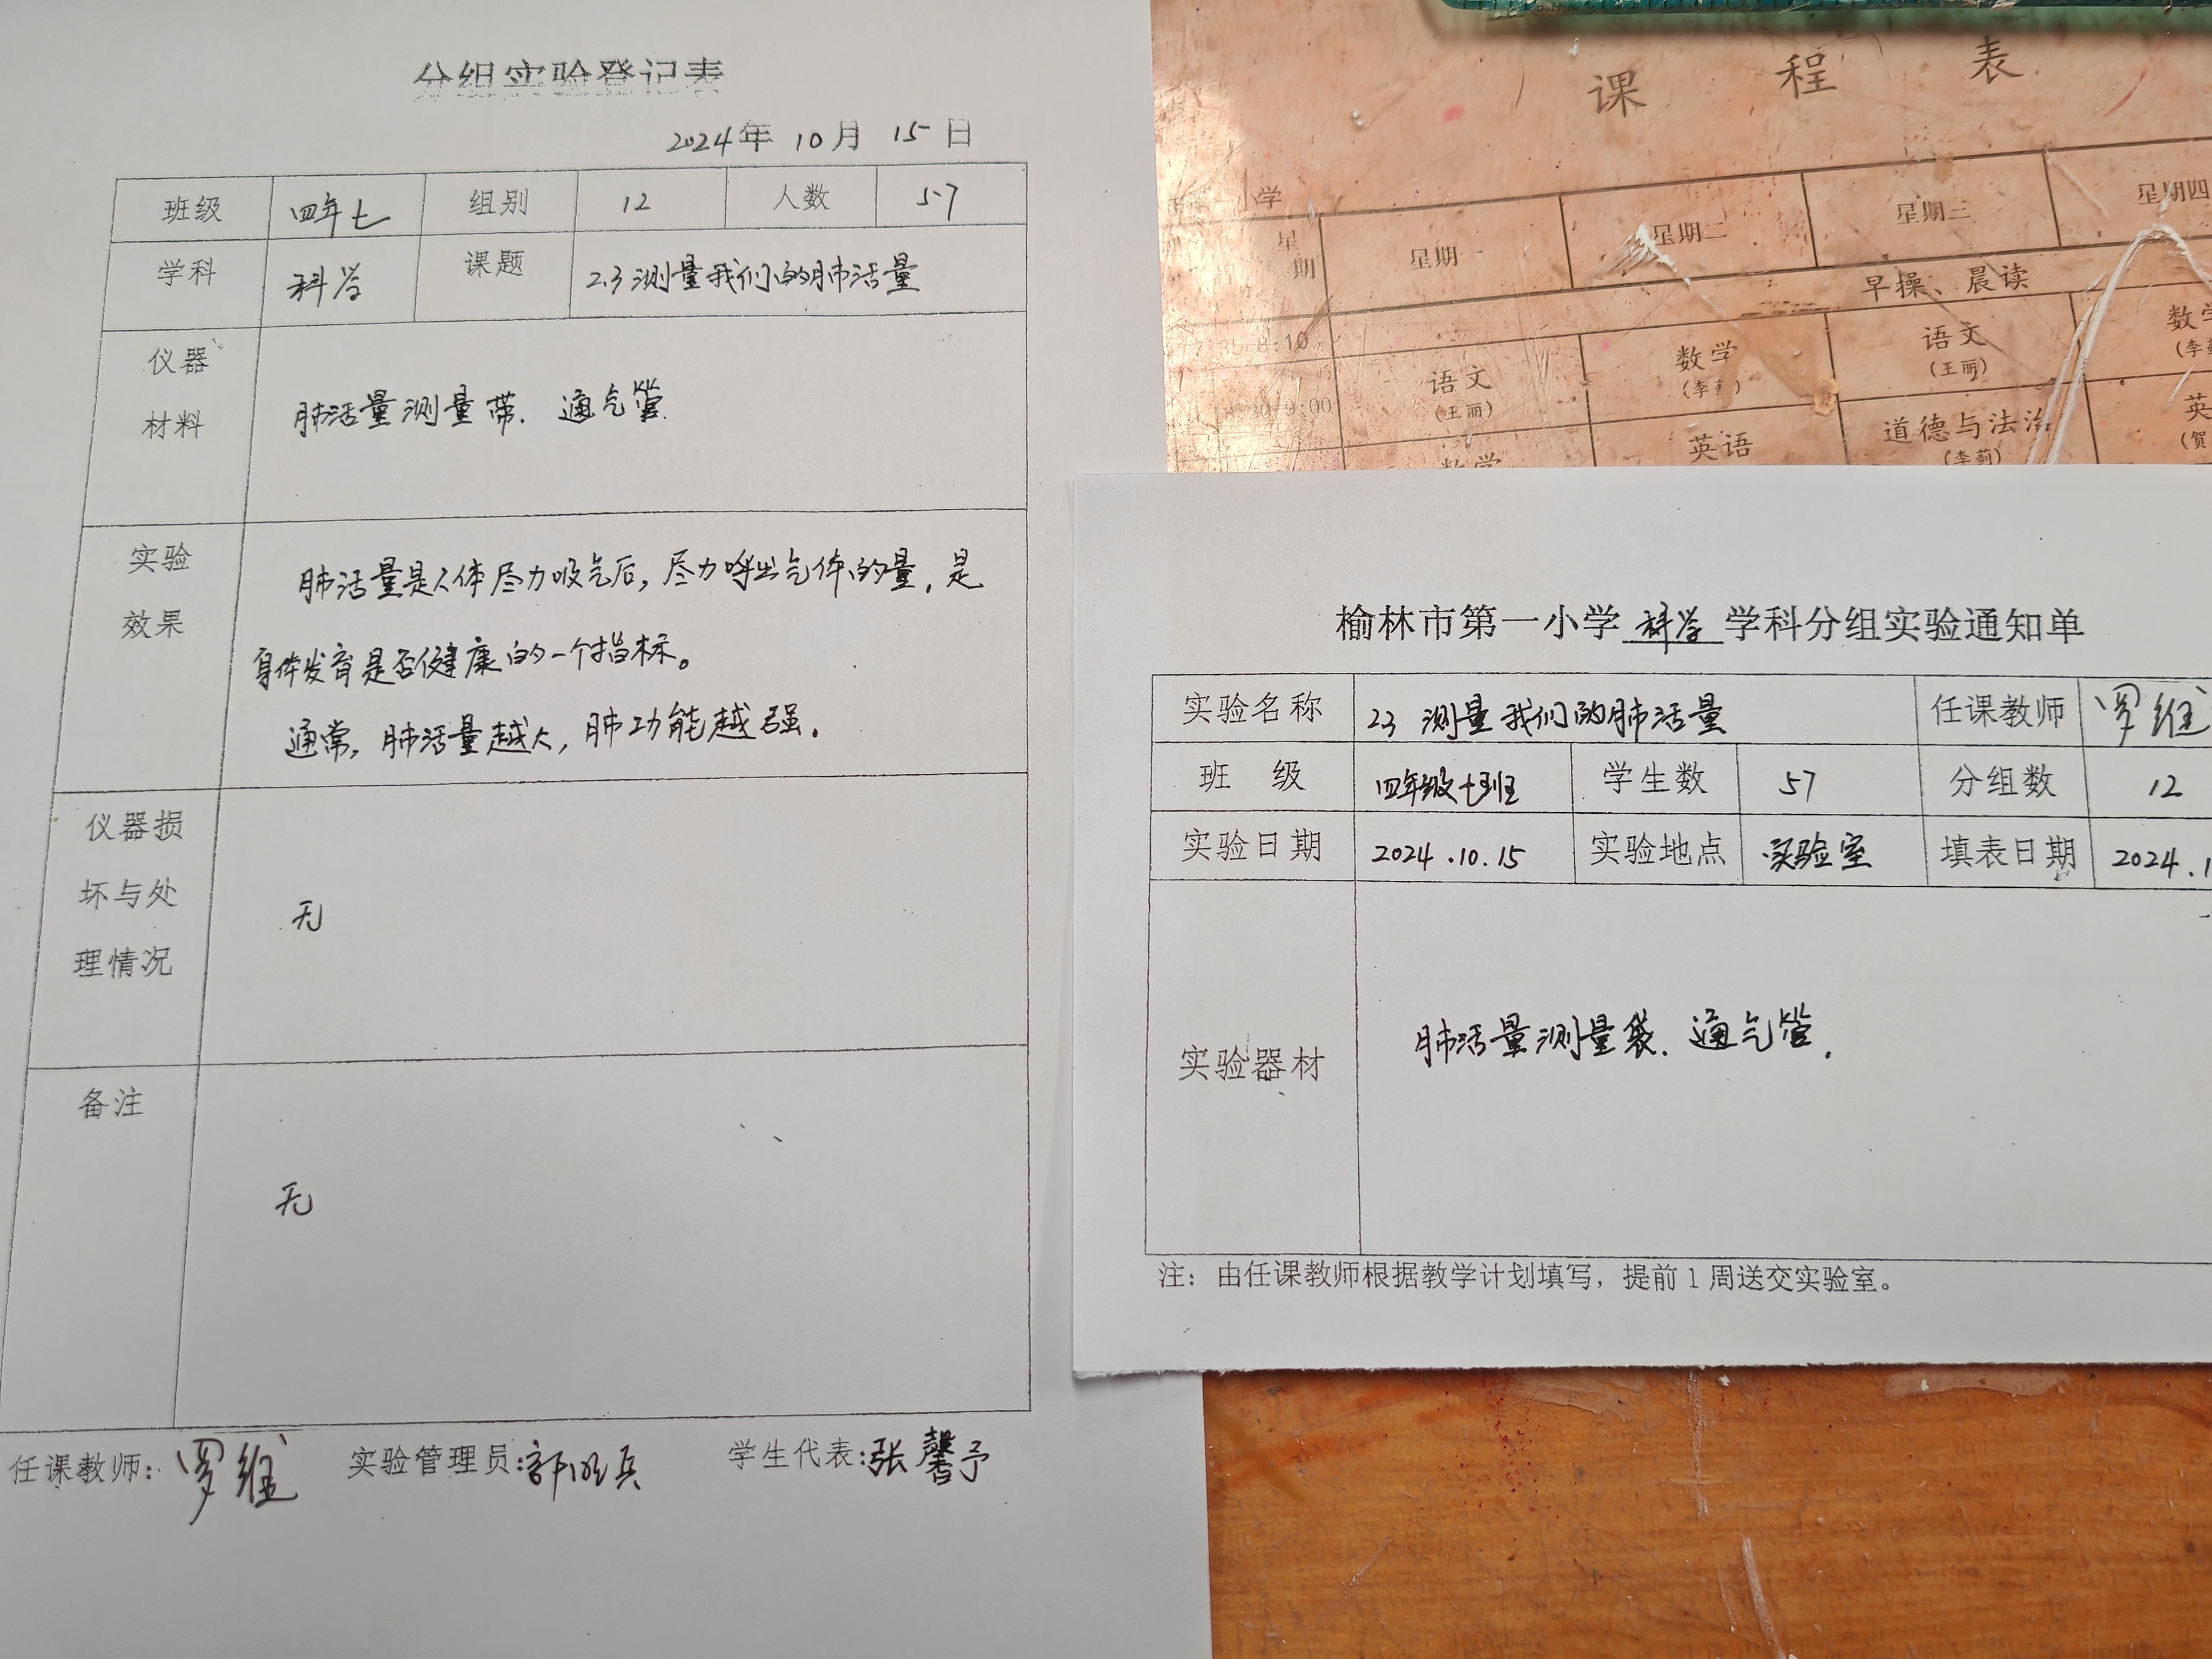 分组实验登记表
2024年 10月 15日
班级 四年七 组别 12 人数 57
学科 科学 课题 2.3测量我们的肺活量
仪器
材料
肺活量测量带. 通气管.
实验
效果
肺活量是人体尽力吸气后,尽力呼出气体的量,是
身体发育是否健康的一个指标。
通常,肺活量越大,肺功能越强。
仪器损
坏与处
理情况
无
备注
无
任课教师: 罗维 实验管理员: 学生代表:张馨予
课 程 表
小学
星期
星期一 星期二 星期三 星期四
早操、晨读
8:10
语文 数学 语文 数学
(王丽) (李 (王丽) (李
9:00
数学 英语 道德与法治 英
(李莉) (贺
榆林市第一小学 科学 学科分组实验通知单
实验名称 2.3 测量我们的肺活量 任课教师 罗维
班 级 四年级七班 学生数 57 分组数 12
实验日期 2024.10.15 实验地点 实验室 填表日期 2024.1
实验器材 肺活量测量袋. 通气管.
注：由任课教师根据教学计划填写，提前1周送交实验室。